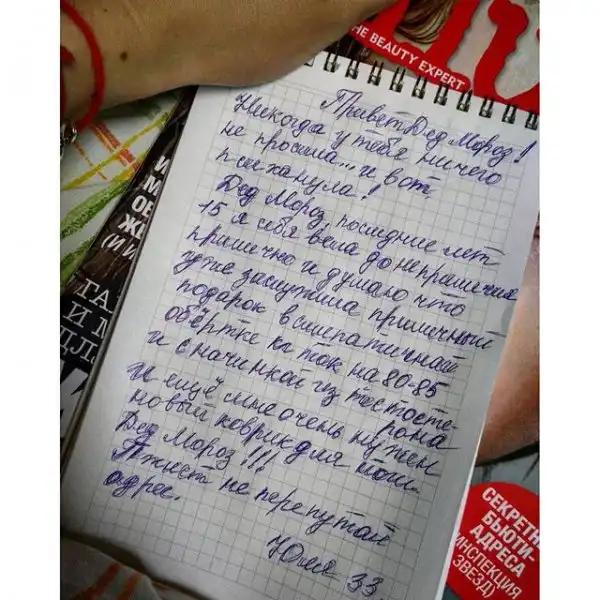 THE BEAUTY EXPERT
Привет Дед Мороз!
Никогда у тебя ничего
не просила... и вот
психанула!
Дед Мороз, последние лет
15 я себя вела до неприличия
прилично и думаю что
уже заслужила приличный
подарок в симпатичной
обёртке кг так на 80-85
и с начинкой из тестосте-
рона
И ещё мне очень нужен
новый коврик для йоги.
Дед Мороз!!!
Пжлст не перепутай
адрес.
Юля 33
СЕКРЕТН
БЬЮТИ-
АДРЕСА
ИНСПЕКЦИЯ
ЗВЕЗД)